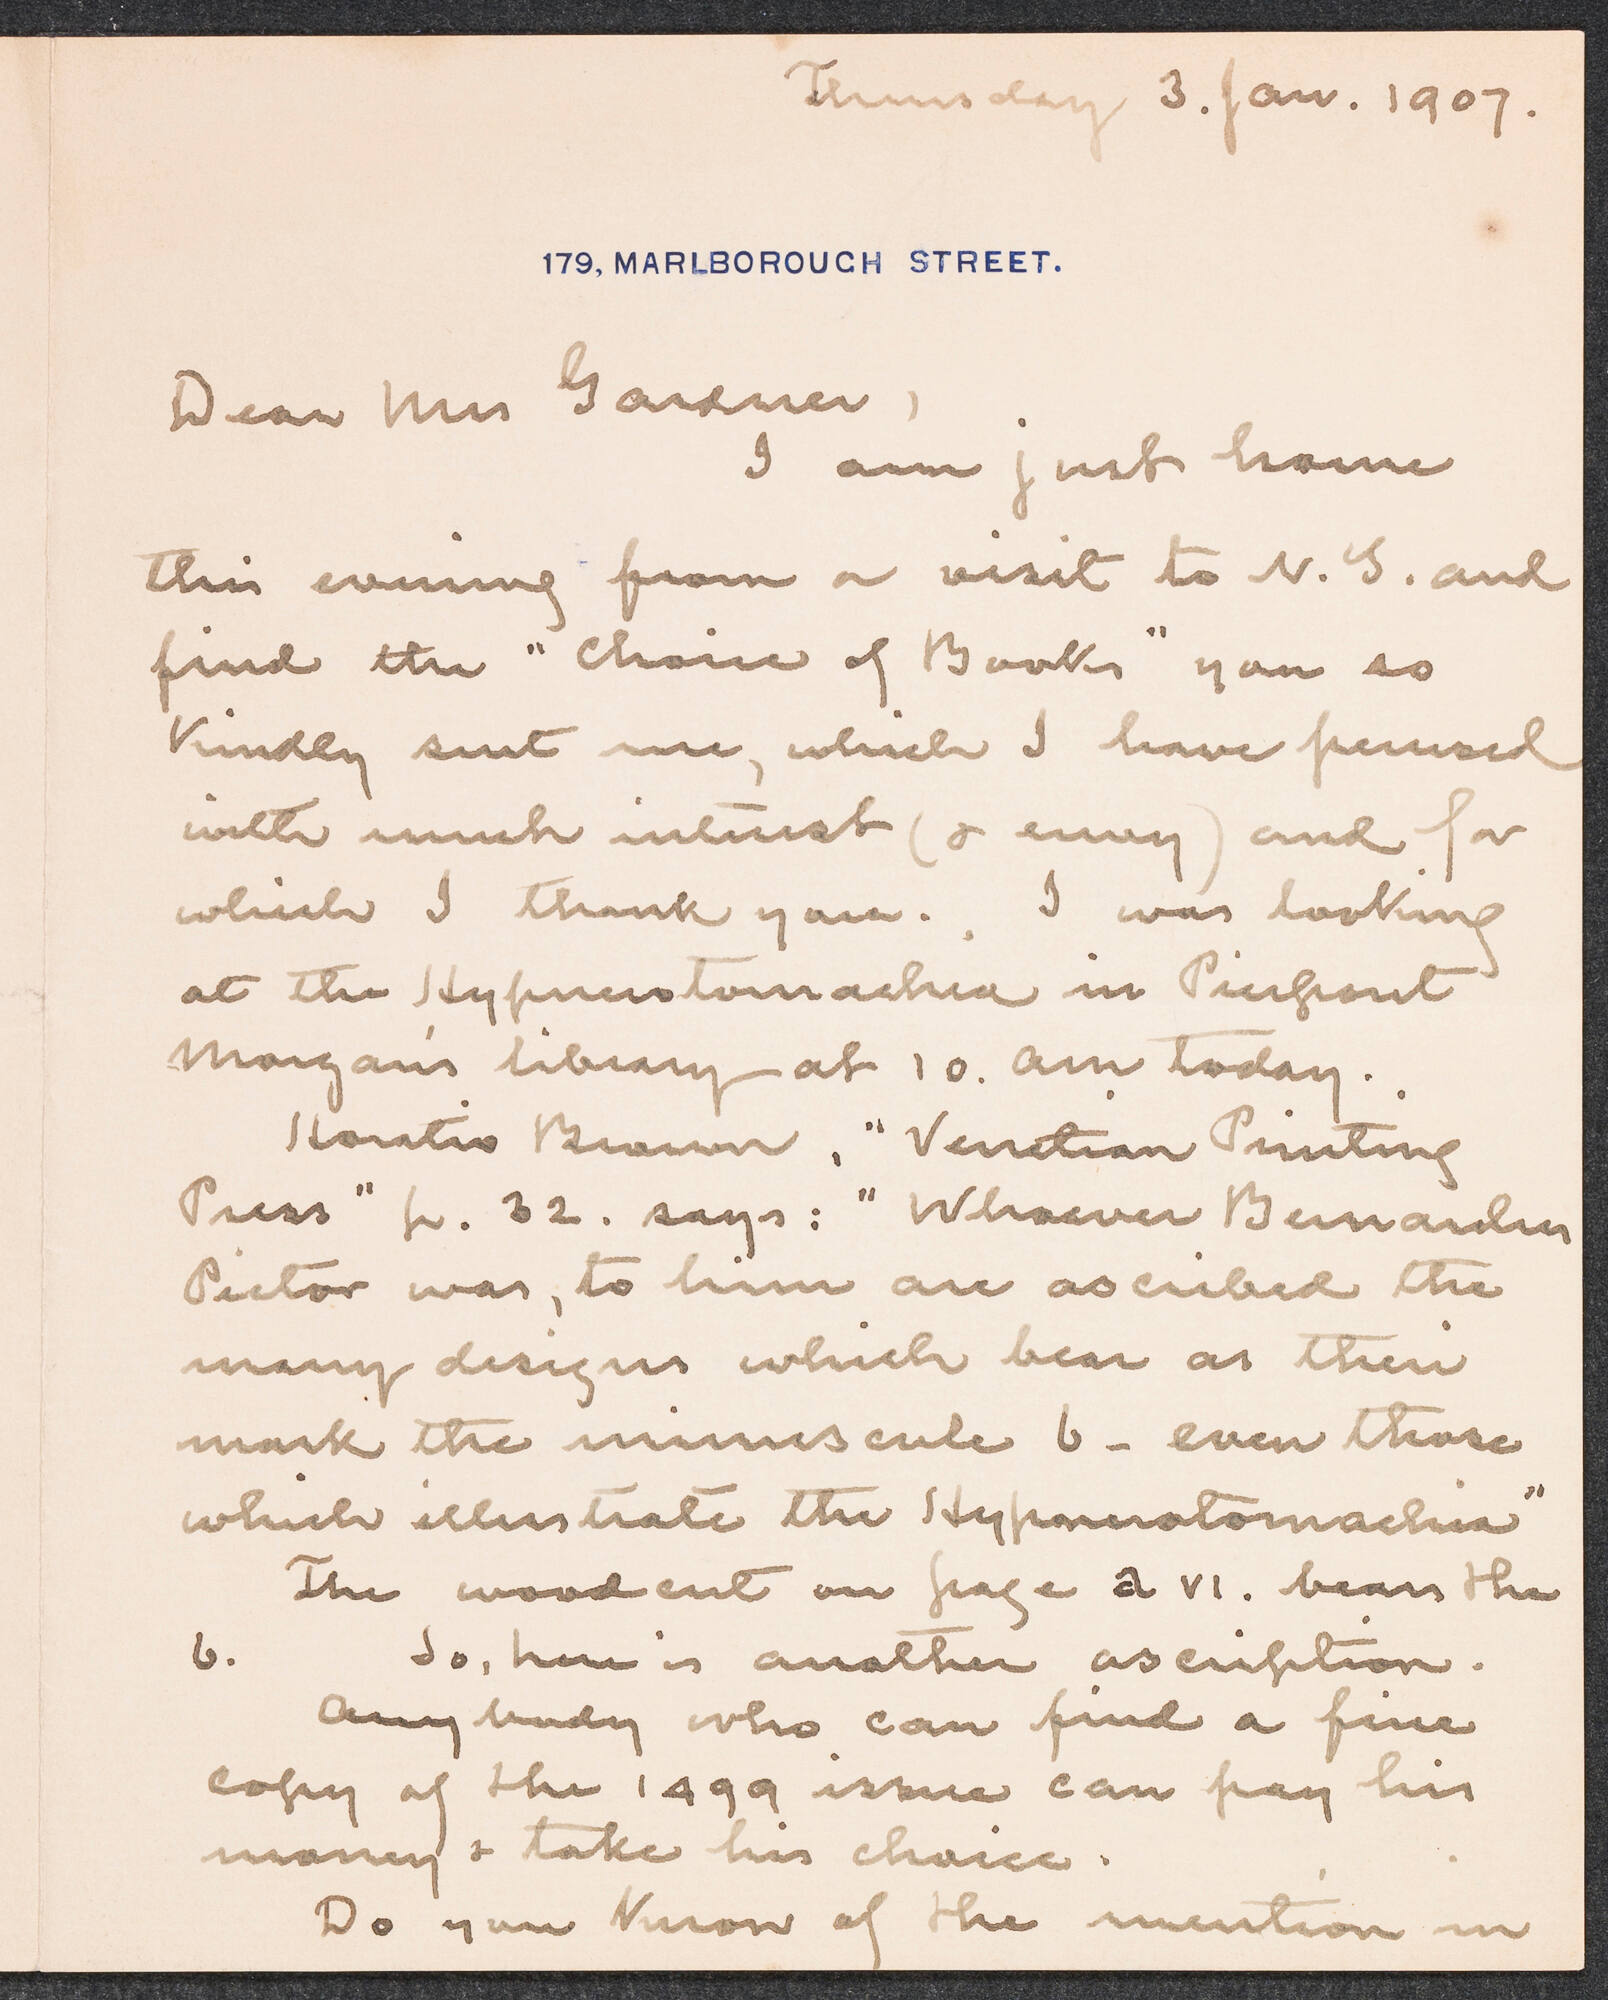 Thursday 3. Jan. 1907.
179, MARLBOROUGH STREET.
Dear Mrs Gardner,
I am just home
this evening from a visit to N.Y. and
find the "Choice of Books" you so
kindly sent me, which I have perused
with much interest (& envy) and for
which I thank you. I was looking
at the Hypnerotomachia in Pierpont
Morgan's library at 10. am today.
Horatio Brown, "Venetian Printing
Press" p. 32. says: "Whoever Bernardus
Pictor was, to him are ascribed the
many designs which bear as their
mark the minuscule b - even those
which illustrate the Hypnerotomachia"
The woodcut on page a VI. bears the
b. So, here is another ascription.
Anybody who can find a fine
copy of the 1499 issue can pay his
money & take his choice.
Do you know of the mention in